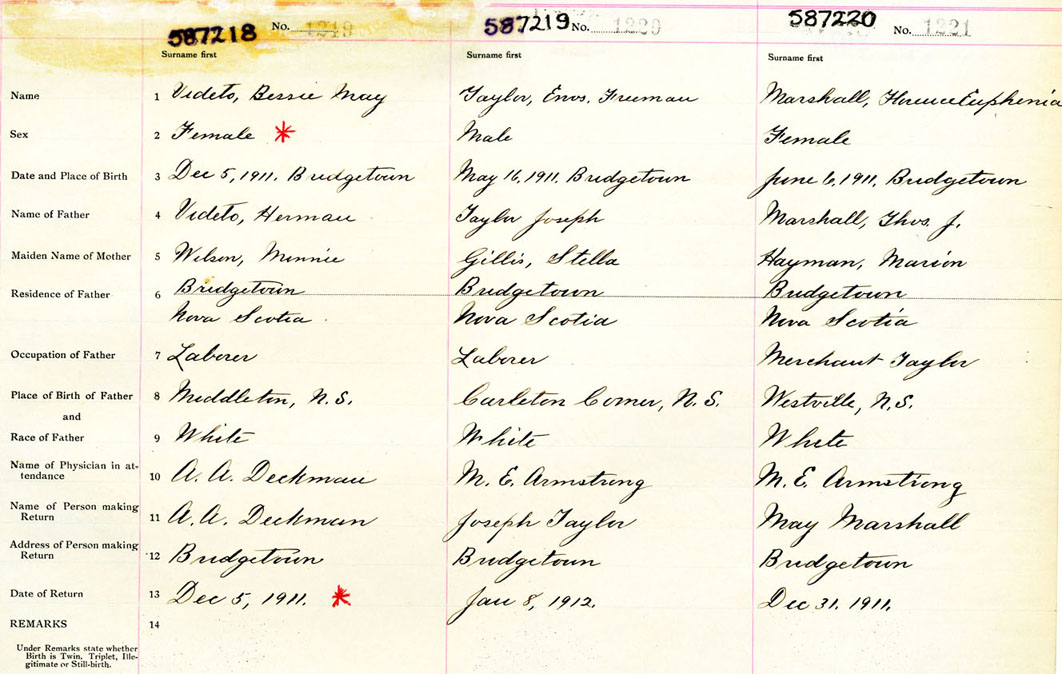 587218 No. 1219 587219 No. 1220 587220 No. 1221
Surname first Surname first Surname first
Name 1 Videto, Bessie May Taylor, Enos. Freeman Marshall, Florence Euphenia
Sex 2 Female * Male Female
Date and Place of Birth 3 Dec 5, 1911. Bridgetown May 16, 1911. Bridgetown June 6, 1911. Bridgetown
Name of Father 4 Videto, Herman Taylor Joseph Marshall, Thos. J.
Maiden Name of Mother 5 Wilson, Minnie Gillis, Stella Hayman, Marion
Residence of Father 6 Bridgetown Bridgetown Bridgetown
Nova Scotia Nova Scotia Nova Scotia
Occupation of Father 7 Laborer Laborer Merchant Taylor
Place of Birth of Father 8 Middleton, N.S. Carleton Corner, N.S. Westville, N.S.
and
Race of Father 9 White White White
Name of Physician in at-
tendance 10 A. A. Deckman M. E. Armstrong M. E. Armstrong
Name of Person making
Return 11 A. A. Deckman Joseph Taylor May Marshall
Address of Person making
Return 12 Bridgetown Bridgetown Bridgetown
Date of Return 13 Dec 5, 1911. * Jan 8, 1912. Dec 31. 1911.
REMARKS 14
Under Remarks state whether
Birth is Twin, Triplet, Ille-
gitimate or Still-birth.